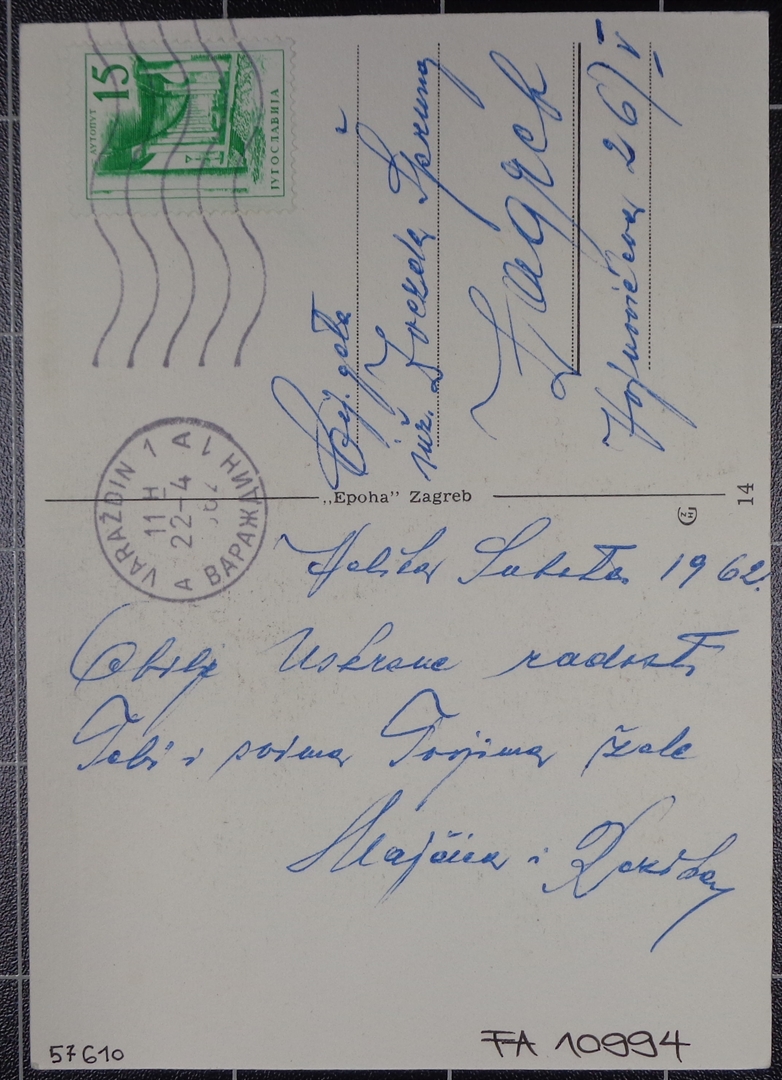 15
АУТОПУТ
ЈУГОСЛАВИЈА
VARAŽDIN 1
11 H
22-4
962
A
ВАРАЖДИН 1 А
Cij. gđa
inž. Šprung
Zagreb
26/V
„Epoha” Zagreb
14
Velika Subota 1962.
Obilje Uskrsne radosti
Tebi i svima Tvojima žele
Majčica i
57610
FA 10994